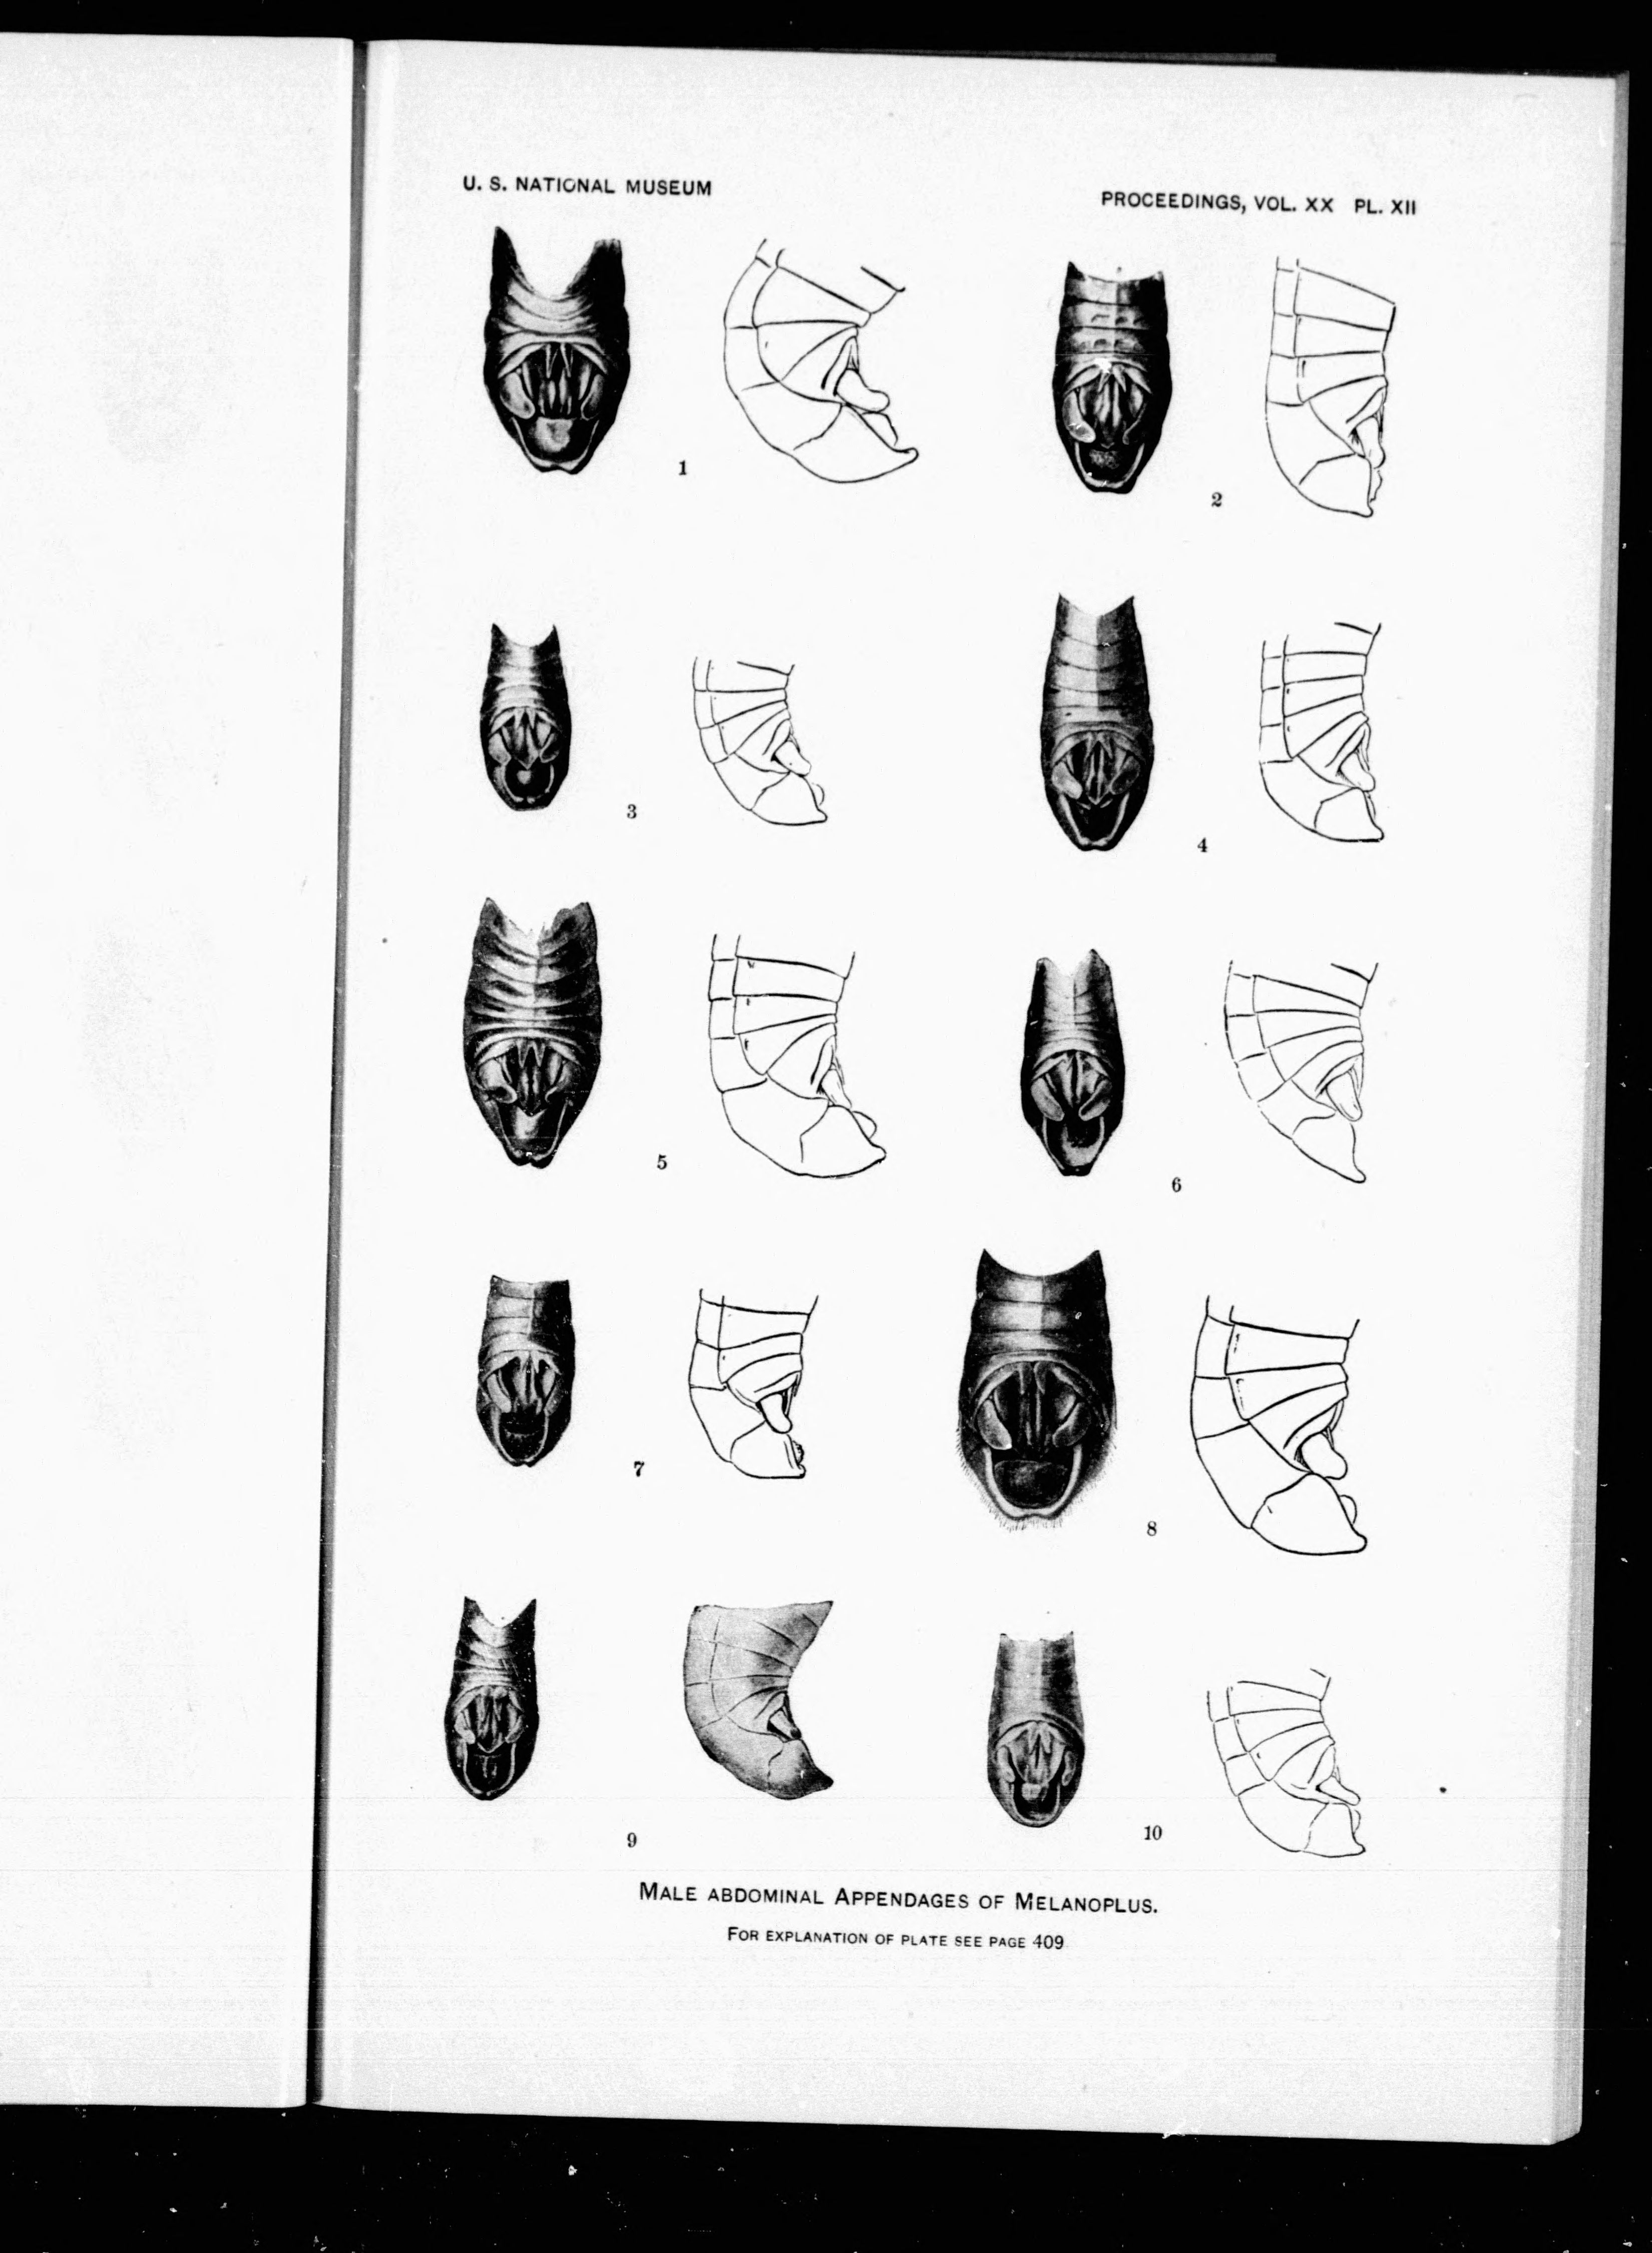 U. S. NATIONAL MUSEUM
PROCEEDINGS, VOL. XX PL. XII
1
2
3
4
5
6
7
8
9
10
MALE ABDOMINAL APPENDAGES OF MELANOPLUS.
FOR EXPLANATION OF PLATE SEE PAGE 409